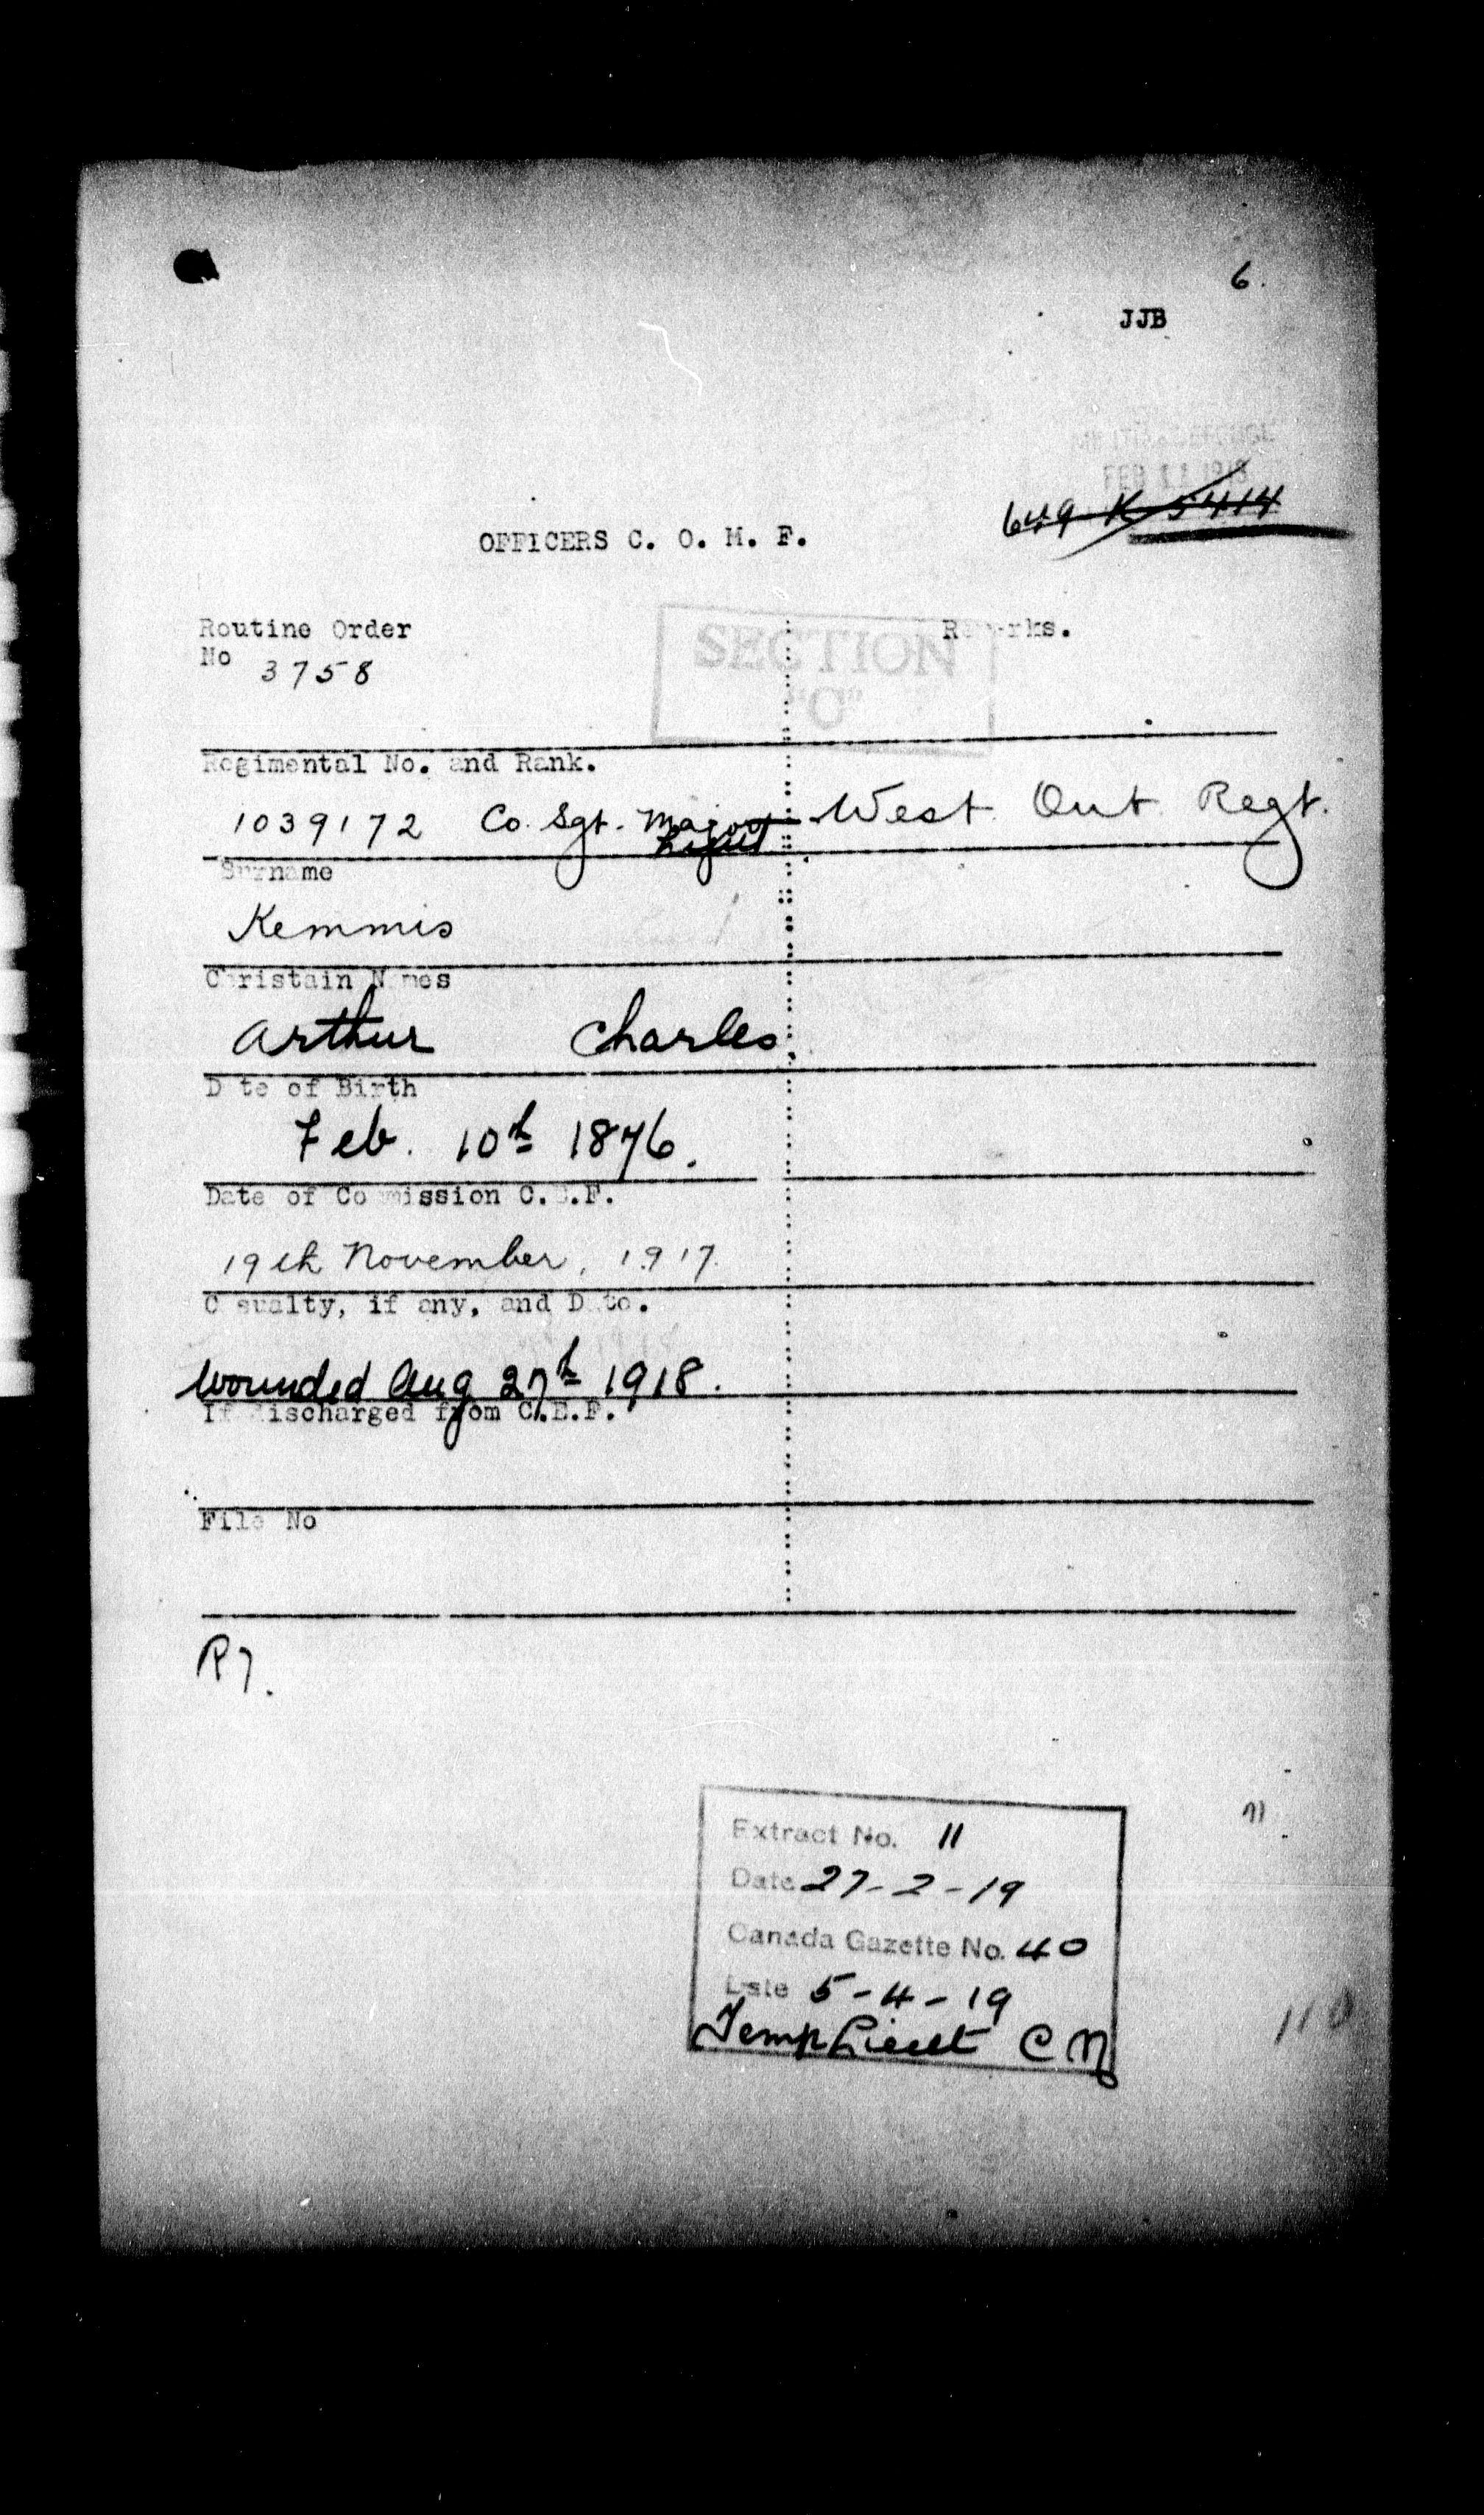 6.
JJB
MILITIA & DEFENCE
FEB 11 1918
649-K-5414
OFFICERS C. O. M. F.
Routine Order
No 3758
Remarks.
SECTION
"O"
Regimental No. and Rank.
1039172 Co. Sgt. Major West Ont Regt.
Lieut
Surname
Kemmis
Christain Names
Arthur Charles
Date of Birth
Feb. 10th 1876.
Date of Commission C.E.F.
19th November, 1917.
Casualty, if any, and Date.
Wounded Aug 27th 1918.
If discharged from C.E.F.
File No
R7.
Extract No. 11
Date 27-2-19
Canada Gazette No. 40
Date 5-4-19
Temp Lieut
110